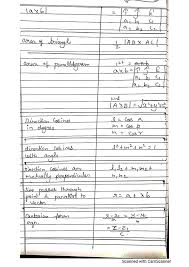 |axb|
= | î ĵ k̂ |
| a₁ b₁ c₁ |
| a₂ b₂ c₂ |
area of triangle
½ |AB x AC|
area of parallelogram
axb = | î ĵ k̂ |
| a₁ b₁ c₁ |
| a₂ b₂ c₂ |
Direction Cosines in degree
l = cos α
m = cos β
n = cos γ
direction cosines with angle
l²+m²+n²=1
Direction cosines are mutually perpendicular
line passes through point & parallel to vector
r = a + λb
Cartesian form eqn
x-x₁ = y-y₁
a b
= z-z₁
c
Scanned with CamScanner